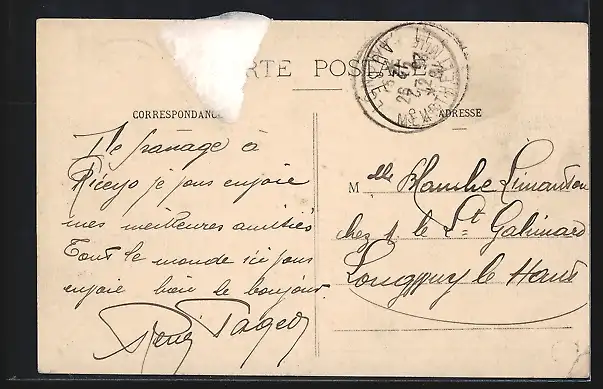 CARTE POSTALE
CORRESPONDANCE
De passage à
Riceys je vous envoie
mes meilleures amitiés
Tout le monde ici vous
envoie bien le bonjour
René
ADRESSE
Melle Blanche Limanton
chez M. le Lt Galimard
Longwy le Haut